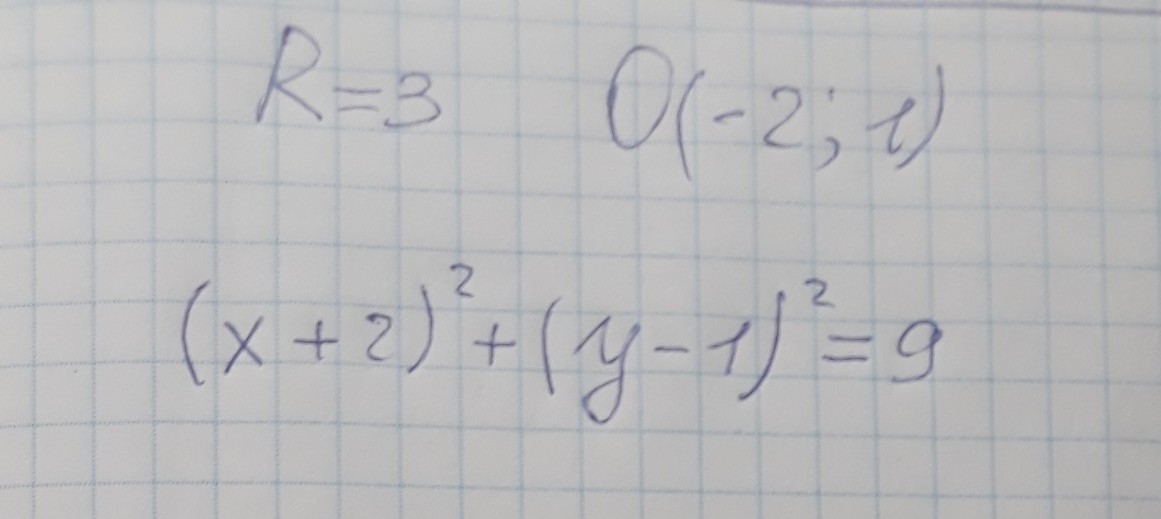 R=3 O(-2; 1)
(x+2)²+(y-1)²=9